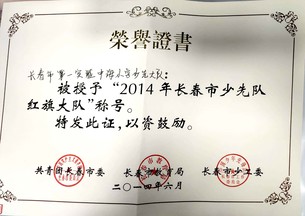 榮譽證書
长春市第一实验中海小学少先大队：
被授予“2014年长春市少先队
红旗大队”称号。
特发此证，以资鼓励。
共青团长春市委 长春市教育局 长春市少工委
二〇一四年六月